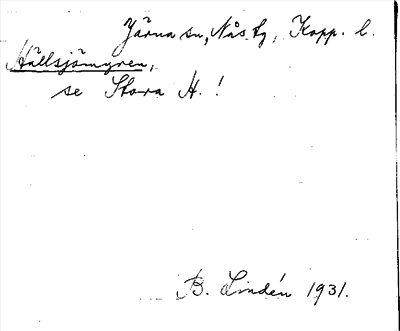 Järna sn, Nås tg, Kopp. l.
Hällsjömyren,
se Stora H.!
B. Lindén 1931.